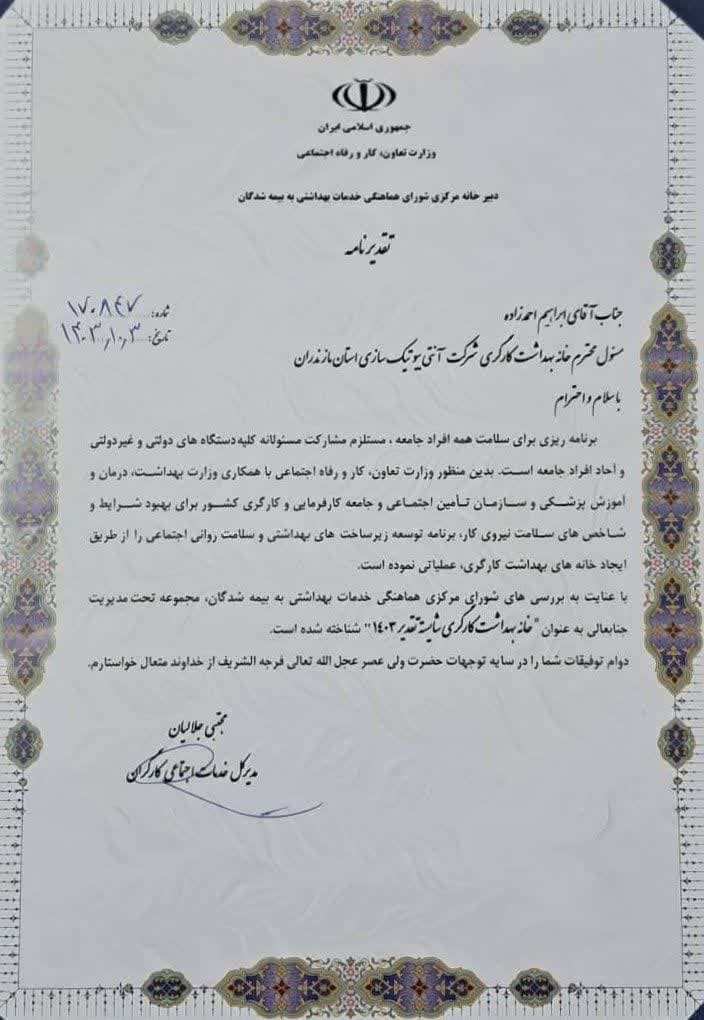 جمهوری اسلامی ایران
وزارت تعاون، کار و رفاه اجتماعی
دبیر خانه مرکزی شورای هماهنگی خدمات بهداشتی به بیمه شدگان
تقدیرنامه
شماره: ۱۷۰۸۴۷
تاریخ: ۱۴۰۳/۱۰/۳
جناب آقای ابراهیم احمدزاده
مسئول محترم خانه بهداشت کارگری شرکت آنتی بیوتیک سازی استان مازندران
با سلام و احترام
برنامه ریزی برای سلامت همه افراد جامعه ، مستلزم مشارکت مسئولانه کلیه دستگاه های دولتی و غیردولتی
و آحاد افراد جامعه است. بدین منظور وزارت تعاون، کار و رفاه اجتماعی با همکاری وزارت بهداشت، درمان و
آموزش پزشکی و سازمان تأمین اجتماعی و جامعه کارفرمایی و کارگری کشور برای بهبود شرایط و
شاخص های سلامت نیروی کار، برنامه توسعه زیرساخت های بهداشتی و سلامت روانی اجتماعی را از طریق
ایجاد خانه های بهداشت کارگری، عملیاتی نموده است.
با عنایت به بررسی های شورای مرکزی هماهنگی خدمات بهداشتی به بیمه شدگان، مجموعه تحت مدیریت
جنابعالی به عنوان "خانه بهداشت کارگری شایسته تقدیر ۱۴۰۳" شناخته شده است.
دوام توفیقات شما را در سایه توجهات حضرت ولی عصر عجل الله تعالی فرجه الشریف از خداوند متعال خواستارم.
مجتبی جلالیان
مدیرکل خدمات اجتماعی کارگران